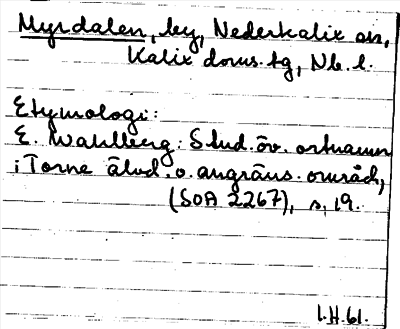 Myrdalen, by, Nederkalix sn,
Kalix doms. tg, Nb. l.
Etymologi:
E. Wahlberg: Stud. öv. ortnamn
i Torne älvd. o. angräns. områd,
(SOA 2267), s, 19.
I.H.61.